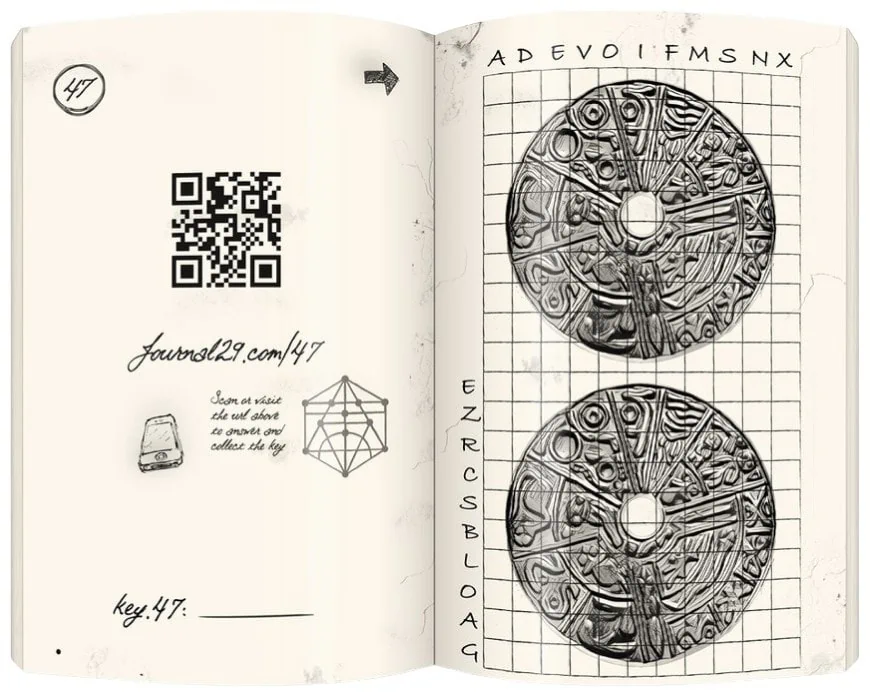 47
Journal29.com/47
Scan or visit
the url above
to answer and
collect the key
key.47:
A D E V O I F M S N X
E
Z
R
C
S
B
L
O
A
G